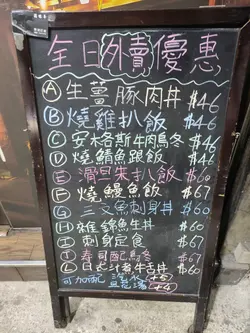 全日外賣優惠
Ⓐ生薑豚肉丼 $46
Ⓑ燒雞扒飯 $46
Ⓒ安格斯牛肉烏冬 $46
Ⓓ燒鯖魚跟飯 $46
Ⓔ滑旦朱扒飯 $60
Ⓕ燒鰻魚飯 $67
Ⓖ三文魚刺身丼 $60
Ⓗ雜錦魚生丼 $60
Ⓘ刺身定食 $67
壽司配烏冬 $67
Ⓛ日式汁煮牛舌丼 $60
可加配 汽水 (+5)
(+4)